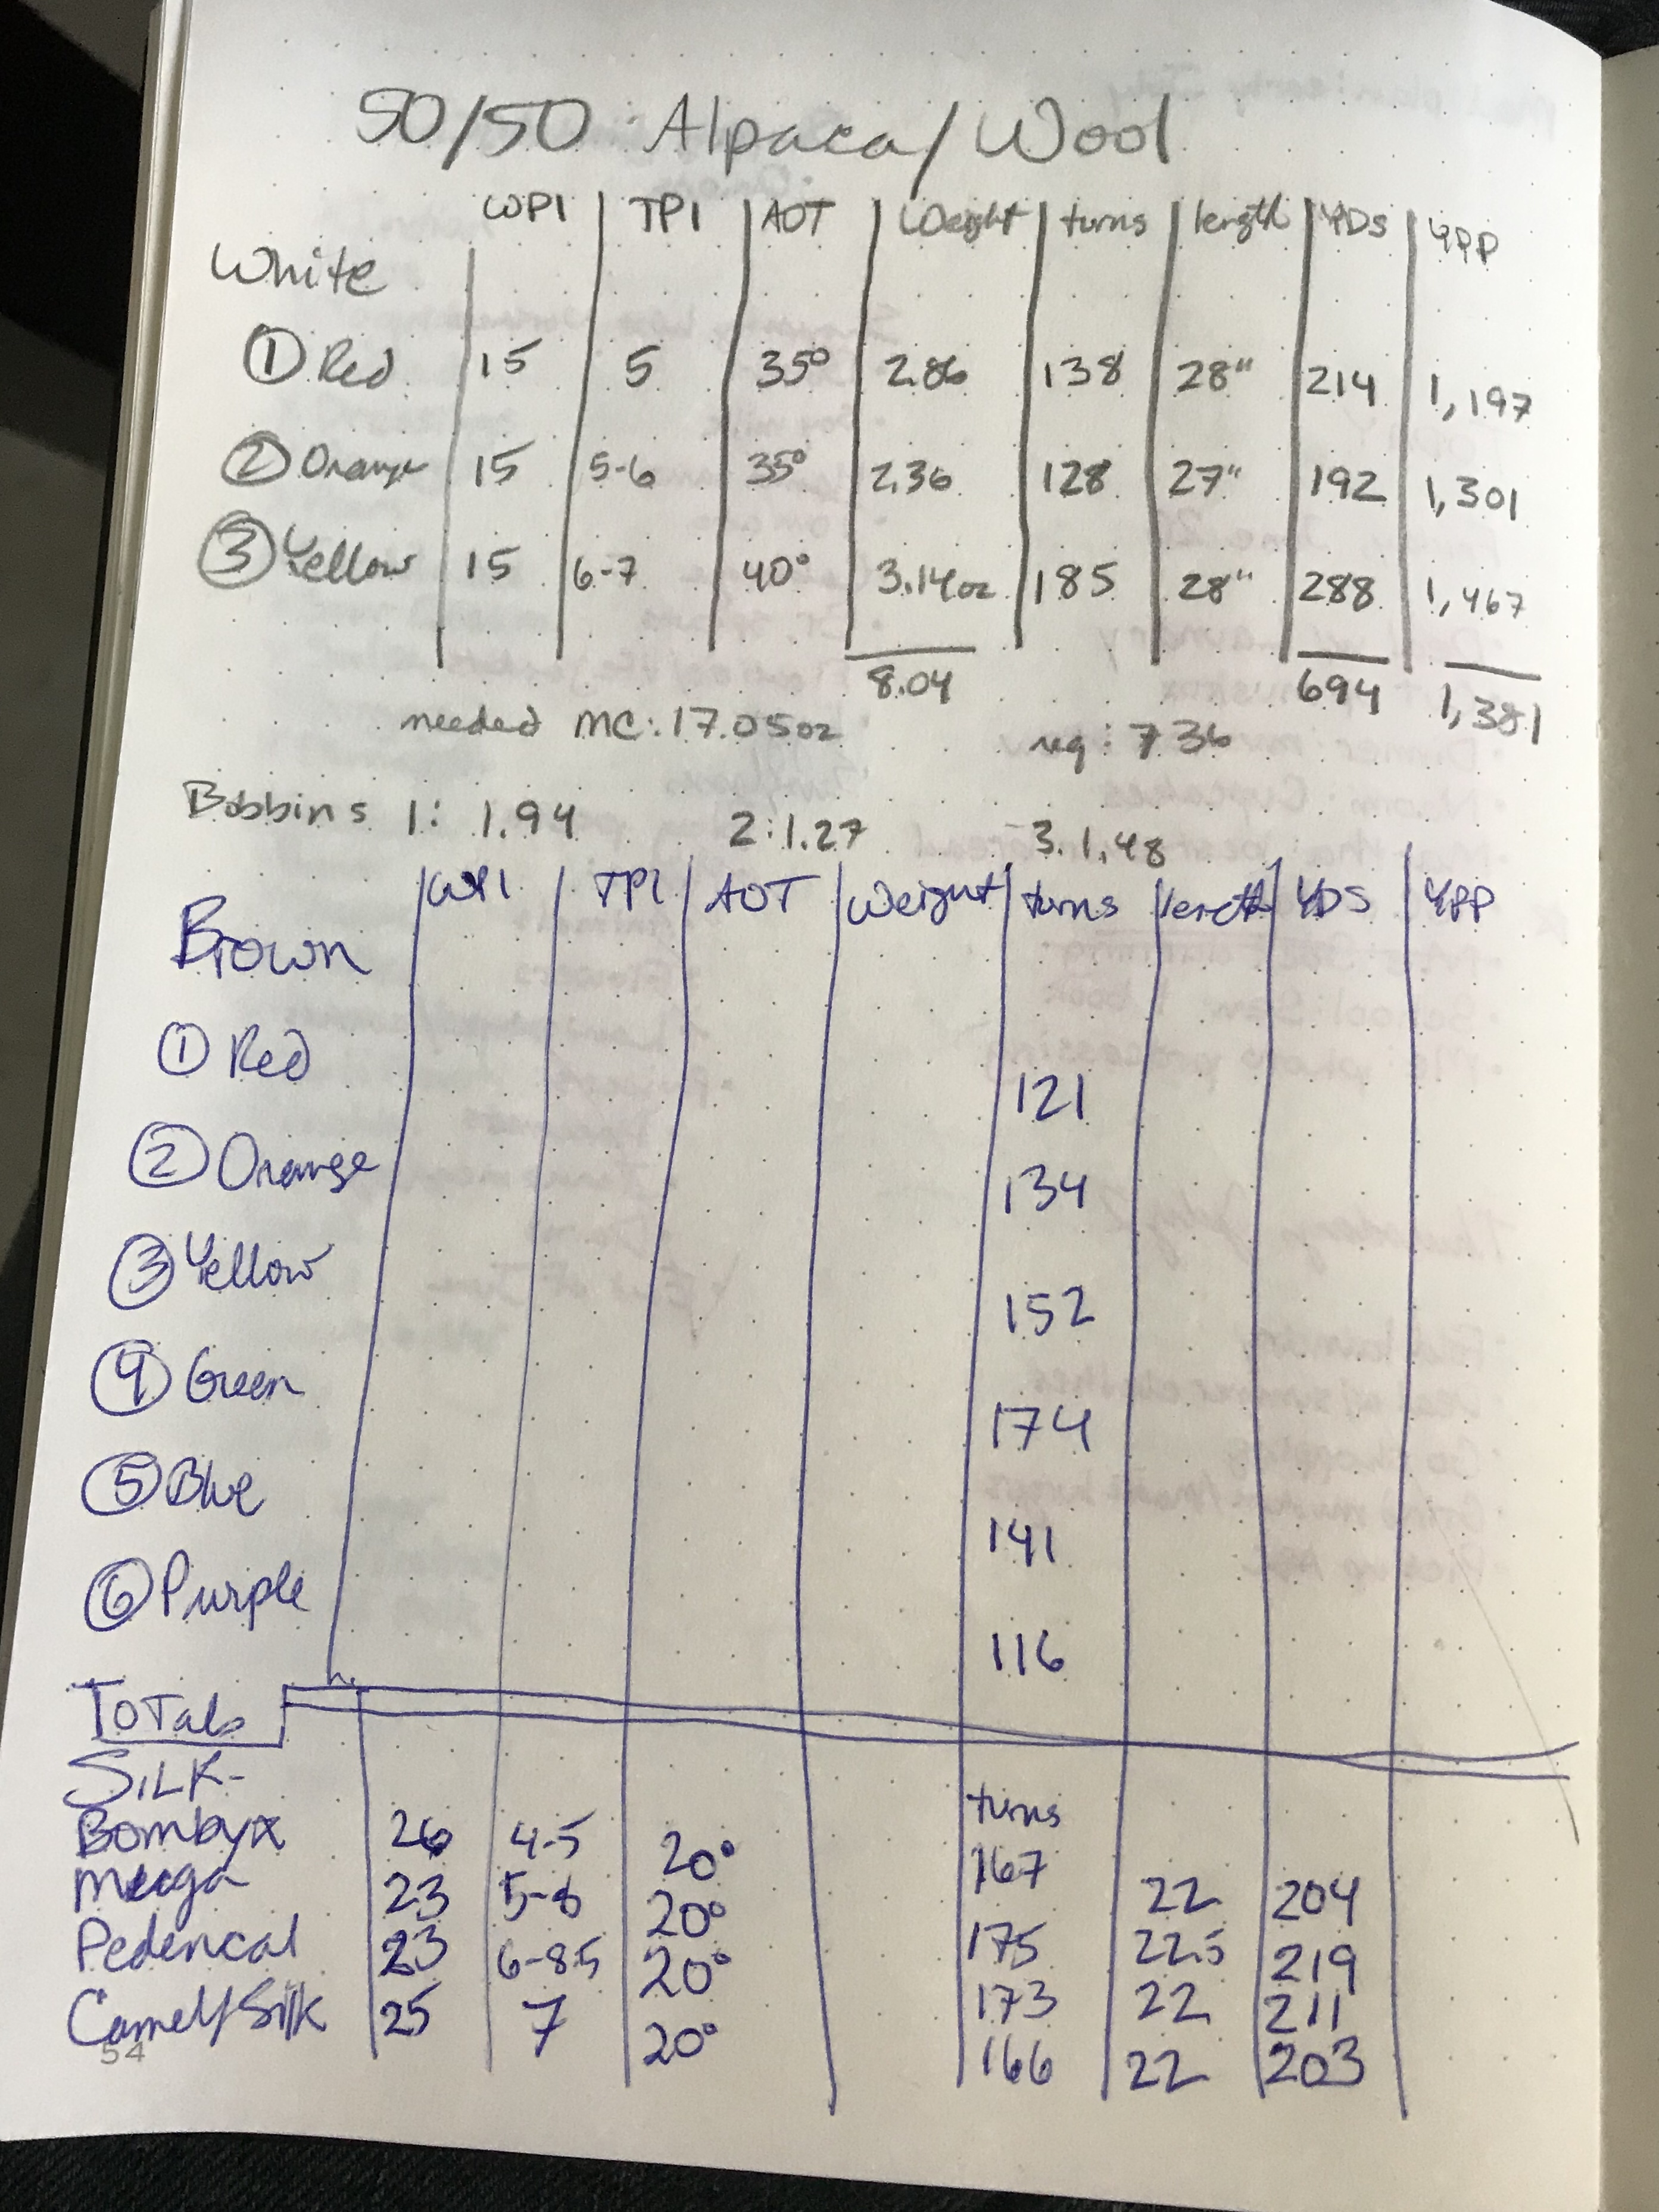 50/50 Alpaca/Wool
WPI TPI AOT Weight turns length YDS YPP
White
① Red 15 5 35° 2.86 138 28" 214 1,197
② Orange 15 5-6 35° 2.36 128 27" 192 1,301
③ Yellow 15 6-7 40° 3.14oz 185 28" 288 1,467
8.04 694 1,381
needed MC: 17.05oz req: 736
Bobbins 1: 1.94 2: 1.27 3. 1.48
WPI TPI AOT Weight turns length YDS YPP
Brown
① Red 121
② Orange 134
③ Yellow 152
④ Green 174
⑤ Blue 141
⑥ Purple 116
Totals
SILK- turns
Bombyx 26 4-5 20° 167 22 204
23 5-8 20° 175 22.5 219
23 6-8.5 20° 173 22 211
Camel/Silk 25 7 20° 166 22 203
54